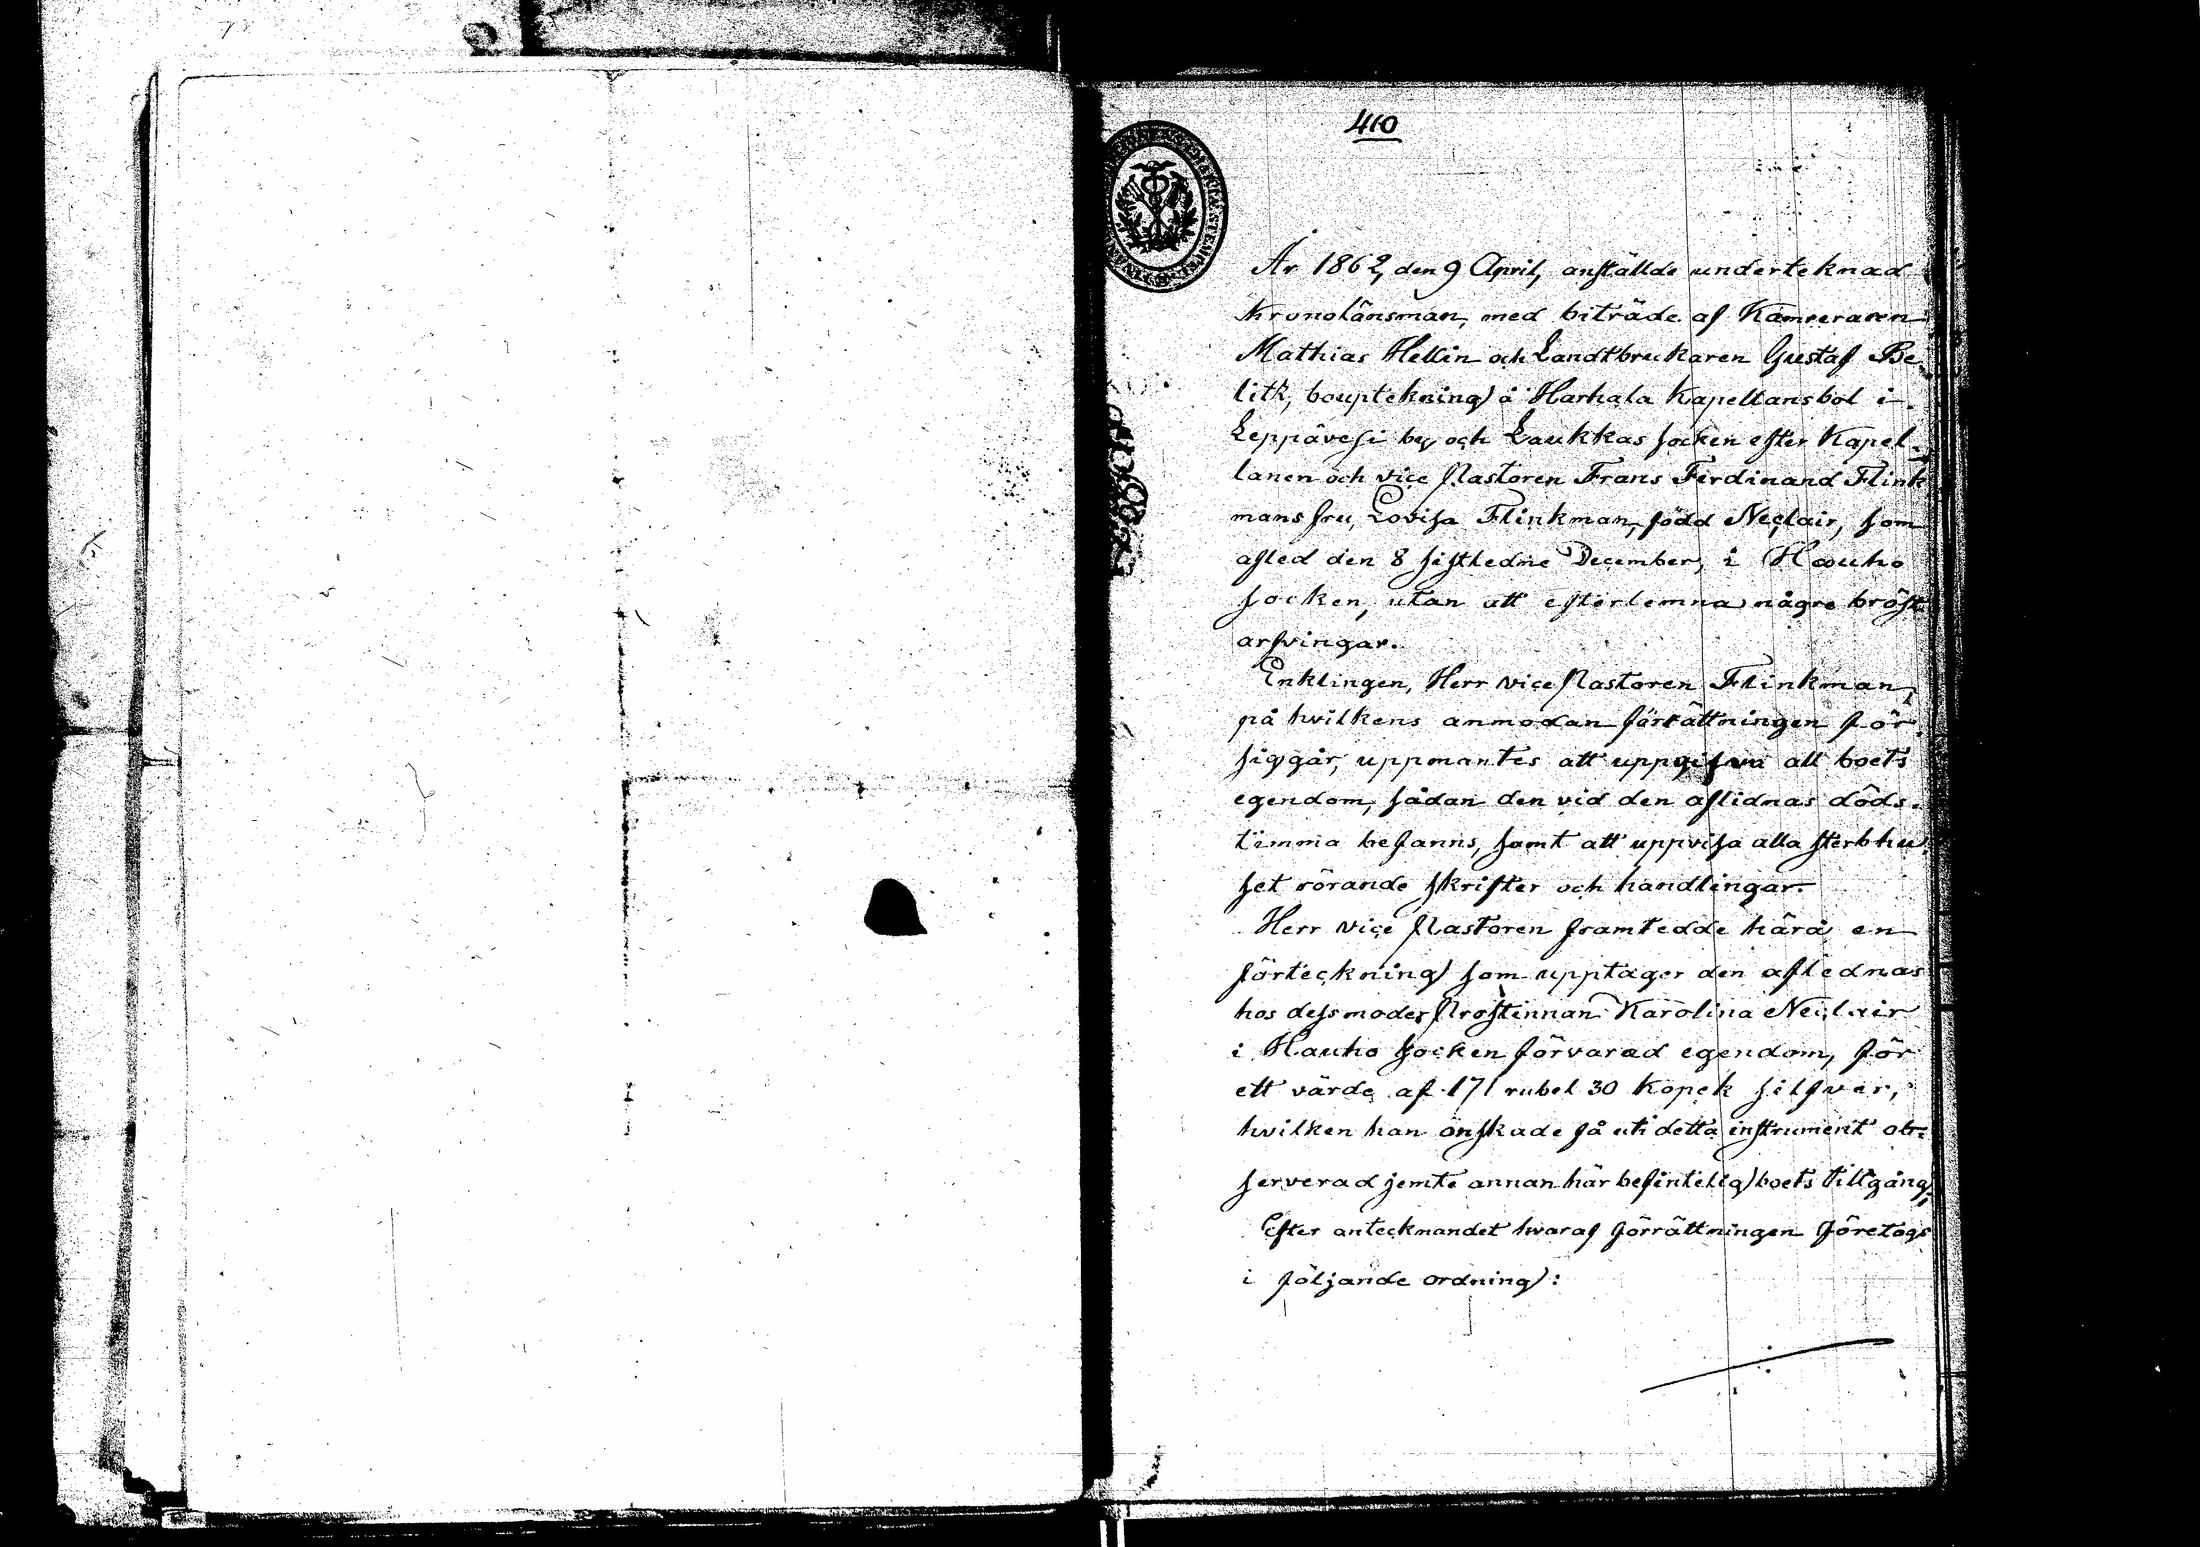 410
År 1862, den 9 April, anställde underteknad
Kronolänsman, med biträde af Kamreraren
Mathias Hellin och Landtbrukaren Gustaf Be-
litk, bouptekning å Harhala Kapellansbol i
Leppävesi by och Laukkas socken efter Kapel-
lanen och vice Pastoren Frans Ferdinand Flink
mans fru, Lovisa Flinkman, född Neclair, som
afled den 8 sistledne December, i Hauho
socken, utan att efterlemna någre bröst
arfvingar.
Enklingen, Herr vice Pastoren Flinkman,
på hvilkens anmodan förrättningen för
sig går, uppmantes att uppgifva all boets
egendom, sådan den vid den aflidnas döds-
timma befanns, samt att uppvisa alla sterbhu-
set rörande skrifter och handlingar.
Herr vice Pastoren framtedde härå en
förteckning som upptager den aflednas
hos dess moder Prostinnan Karolina Neclair
i Hauho socken förvarad egendom, för
ett värde af 171 rubel 30 kopek silfver,
hvilken han önskade få uti detta instrument ob-
serverad jemte annan här befintelig boets tillgång.
Efter antecknandet hvaraf förrättningen företogs
i följande ordning: